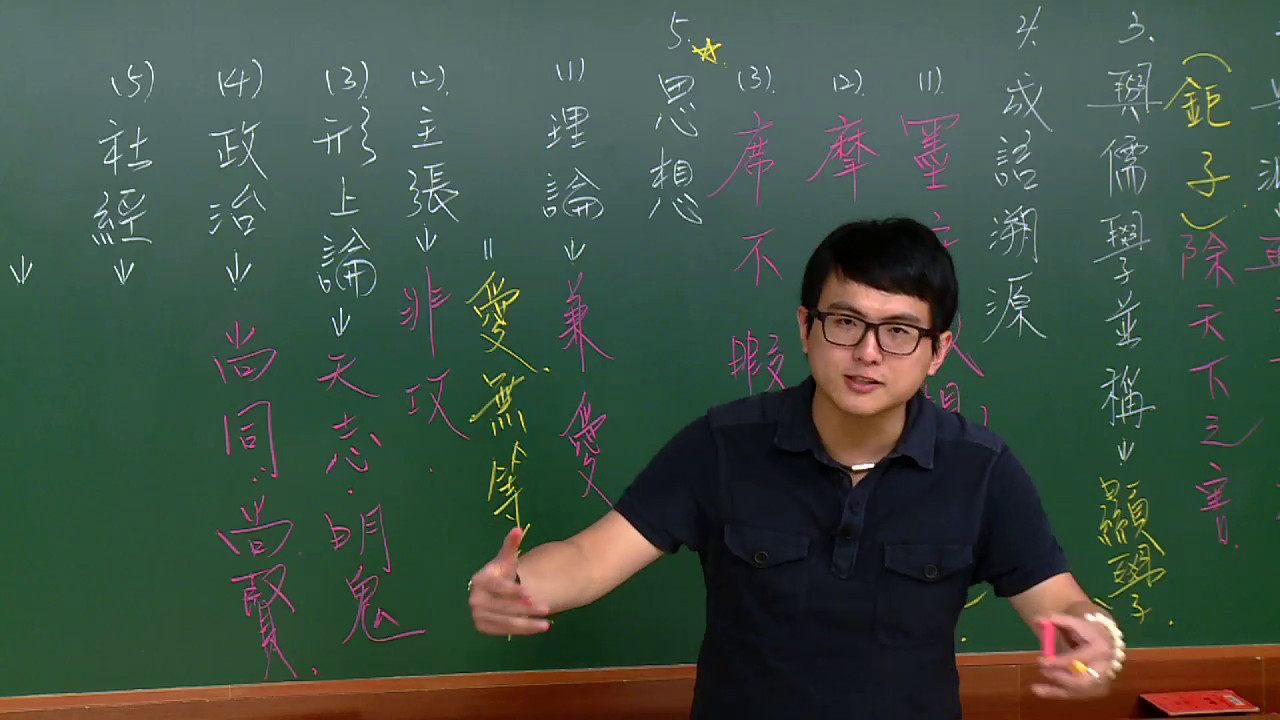 3. 與儒學並稱↓顯學.
(鉅子)除天下之害.
4. 成語溯源
(1). 墨
(2). 摩
(3). 席不暇
5. ☆. 思想
(1) 理論↓兼愛
=愛無等
(2). 主張↓非攻.
(3) 形上論↓天志.明鬼
(4) 政治↓尚同.尚賢.
(5) 社經↓
↓